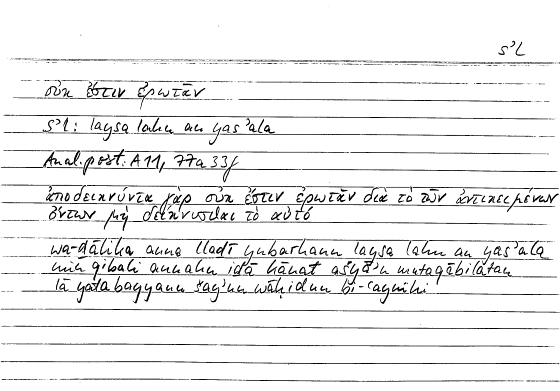 sʾl
οὐκ ἔστιν ἐρωτᾶν
sʾl: laysa lahu an yasʾala
Anal. post. A 11, 77a 33f
ἀποδεικνύντα γὰρ οὐκ ἔστιν ἐρωτᾶν διὰ τὸ τῶν ἀντικειμένων
ὄντων μὴ δείκνυσθαι τὸ αὐτό
wa-ḏālika anna llaḏī yubarhanu laysa lahu an yasʾala
min qibali annahu iḏā kānat ašyāʾu mutaqābilatan
lā yatabayyanu šayʾun wāḥidun bi-ʿaynihi